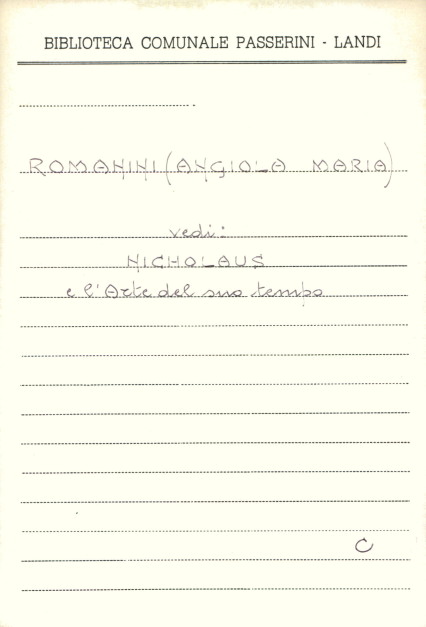 BIBLIOTECA COMUNALE PASSERINI - LANDI
ROMANINI (ANGIOLA MARIA)
vedi:
NICHOLAUS
e l'Arte del suo tempo
C